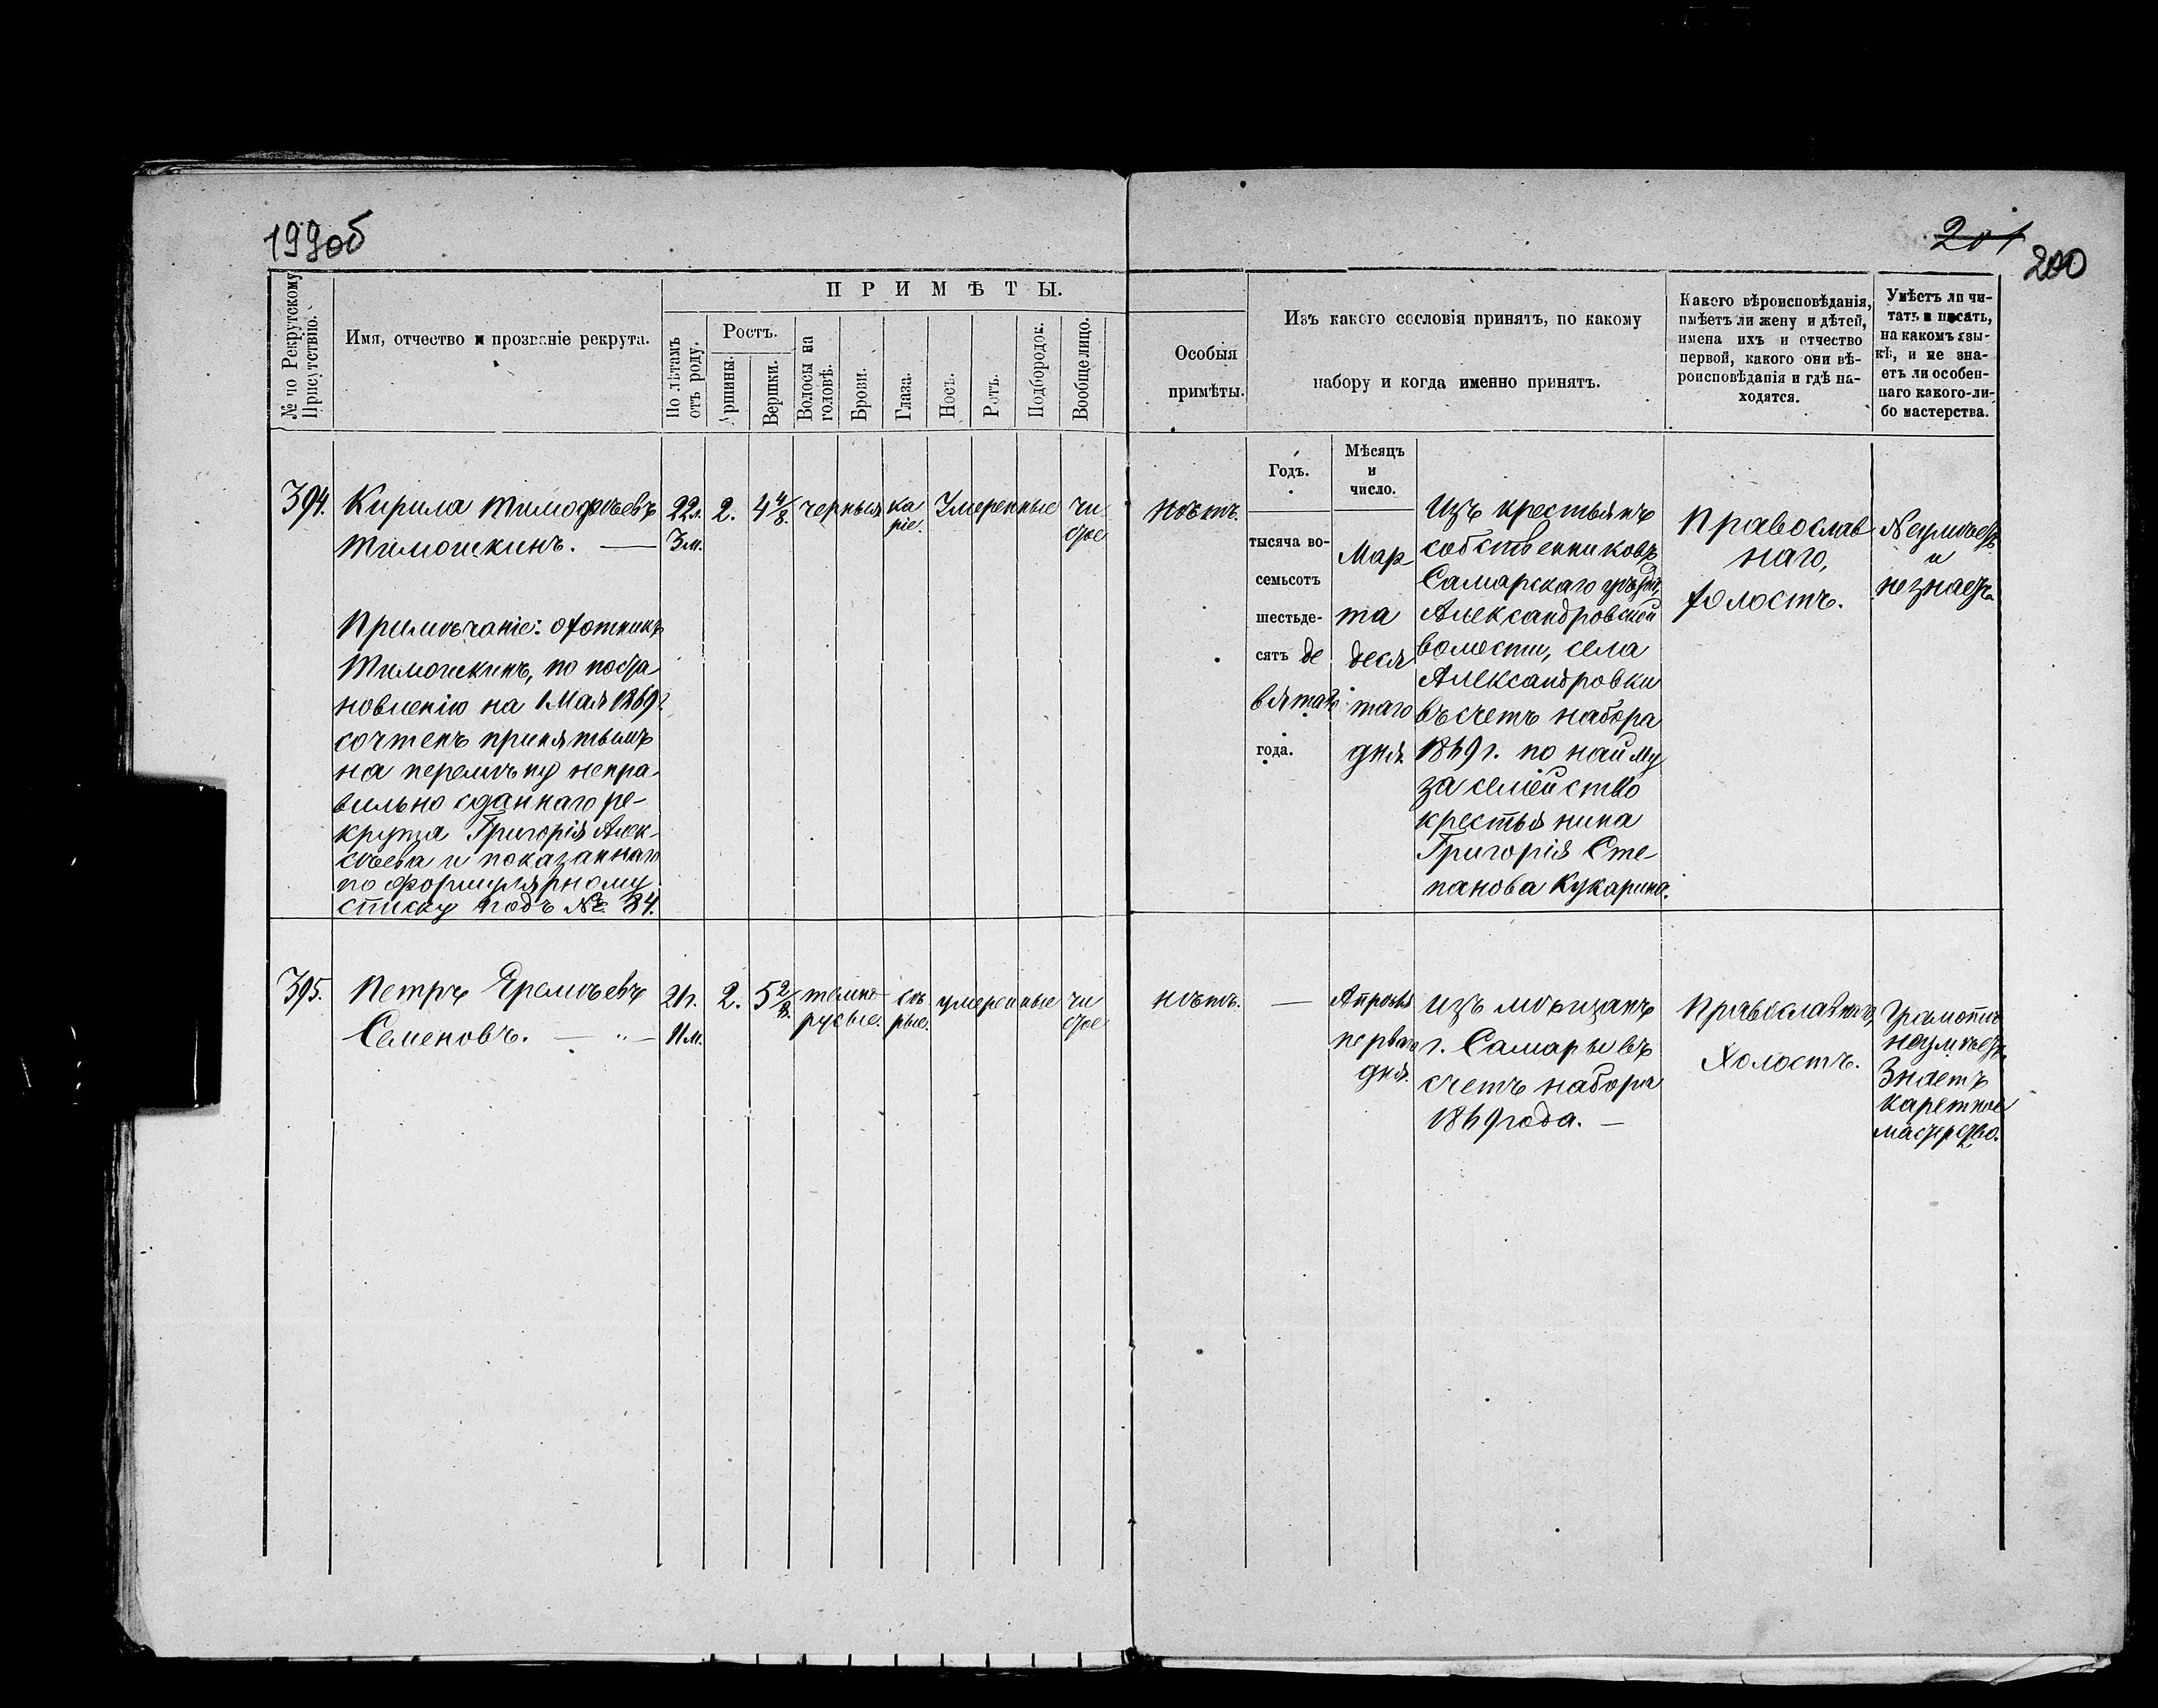 199об
201
200
№ по Рекрутскому
Присутствію.
Имя, отчество и прозваніе рекрута.
ПРИМѢТЫ.
По лѣтамъ
отъ роду.
Ростъ.
Аршины.
Вершки.
Волосы на
головѣ.
Брови.
Глаза.
Носъ.
Ротъ.
Подбородок.
Вообще лицо.
Особыя
примѣты.
Изъ какого сословія принятъ, по какому
набору и когда именно принятъ.
Какого вѣроисповѣданія,
имѣетъ ли жену и дѣтей,
имена ихъ и отчество
первой, какого они вѣ-
роисповѣданія и гдѣ на-
ходятся.
Умѣетъ ли чи-
тать и писать,
на какомъ язы-
кѣ, и не зна-
етъ ли особен-
наго какого-ли-
бо мастерства.
394.
Кирила Тимофѣевъ
Тимошкинъ. —
Примѣчаніе: охотникъ
Тимошкинъ, по поста
новленію на 1 Мая 1869 г
сочтенъ принятымъ
на перемѣну непра-
вильно сданнаго ре-
крута Григорія Алек-
сѣева и показаннаго
по формулярному
списку подъ № 84.
22 л.
3 м.
2.
4 4/8.
черныя
ка
ріе.
Умеренные
чи
стое
Нѣтъ.
Годъ.
тысяча во-
семьсотъ
шестьде-
сятъ де
вятаго
года.
Мѣсяцъ
и
число.
Мар
та
деся
таго
дня
Изъ крестьянъ
собственниковъ
Самарскаго уѣзда,
Александровской
волости, села
Александровки
въ счетъ набора
1869 г. по найму
за семейство
крестьянина
Григорія Сте-
панова Кукарина.
Православ
наго,
холостъ.
Неумѣетъ
и
незнаетъ
395.
Петръ Яремѣевъ
Семеновъ. — „ —
21 г.
11 м.
2.
5 2/8.
темно
русые.
сѣ
рые.
умеренные
чи
стое
нѣтъ.
—
Апрѣля
перваго
дня.
Изъ мѣщанъ
г. Самары въ
счетъ набора
1869 года. —
Православнаго,
Холостъ.
Грамотѣ
неумѣетъ.
Знаетъ
каретное
мастерство.